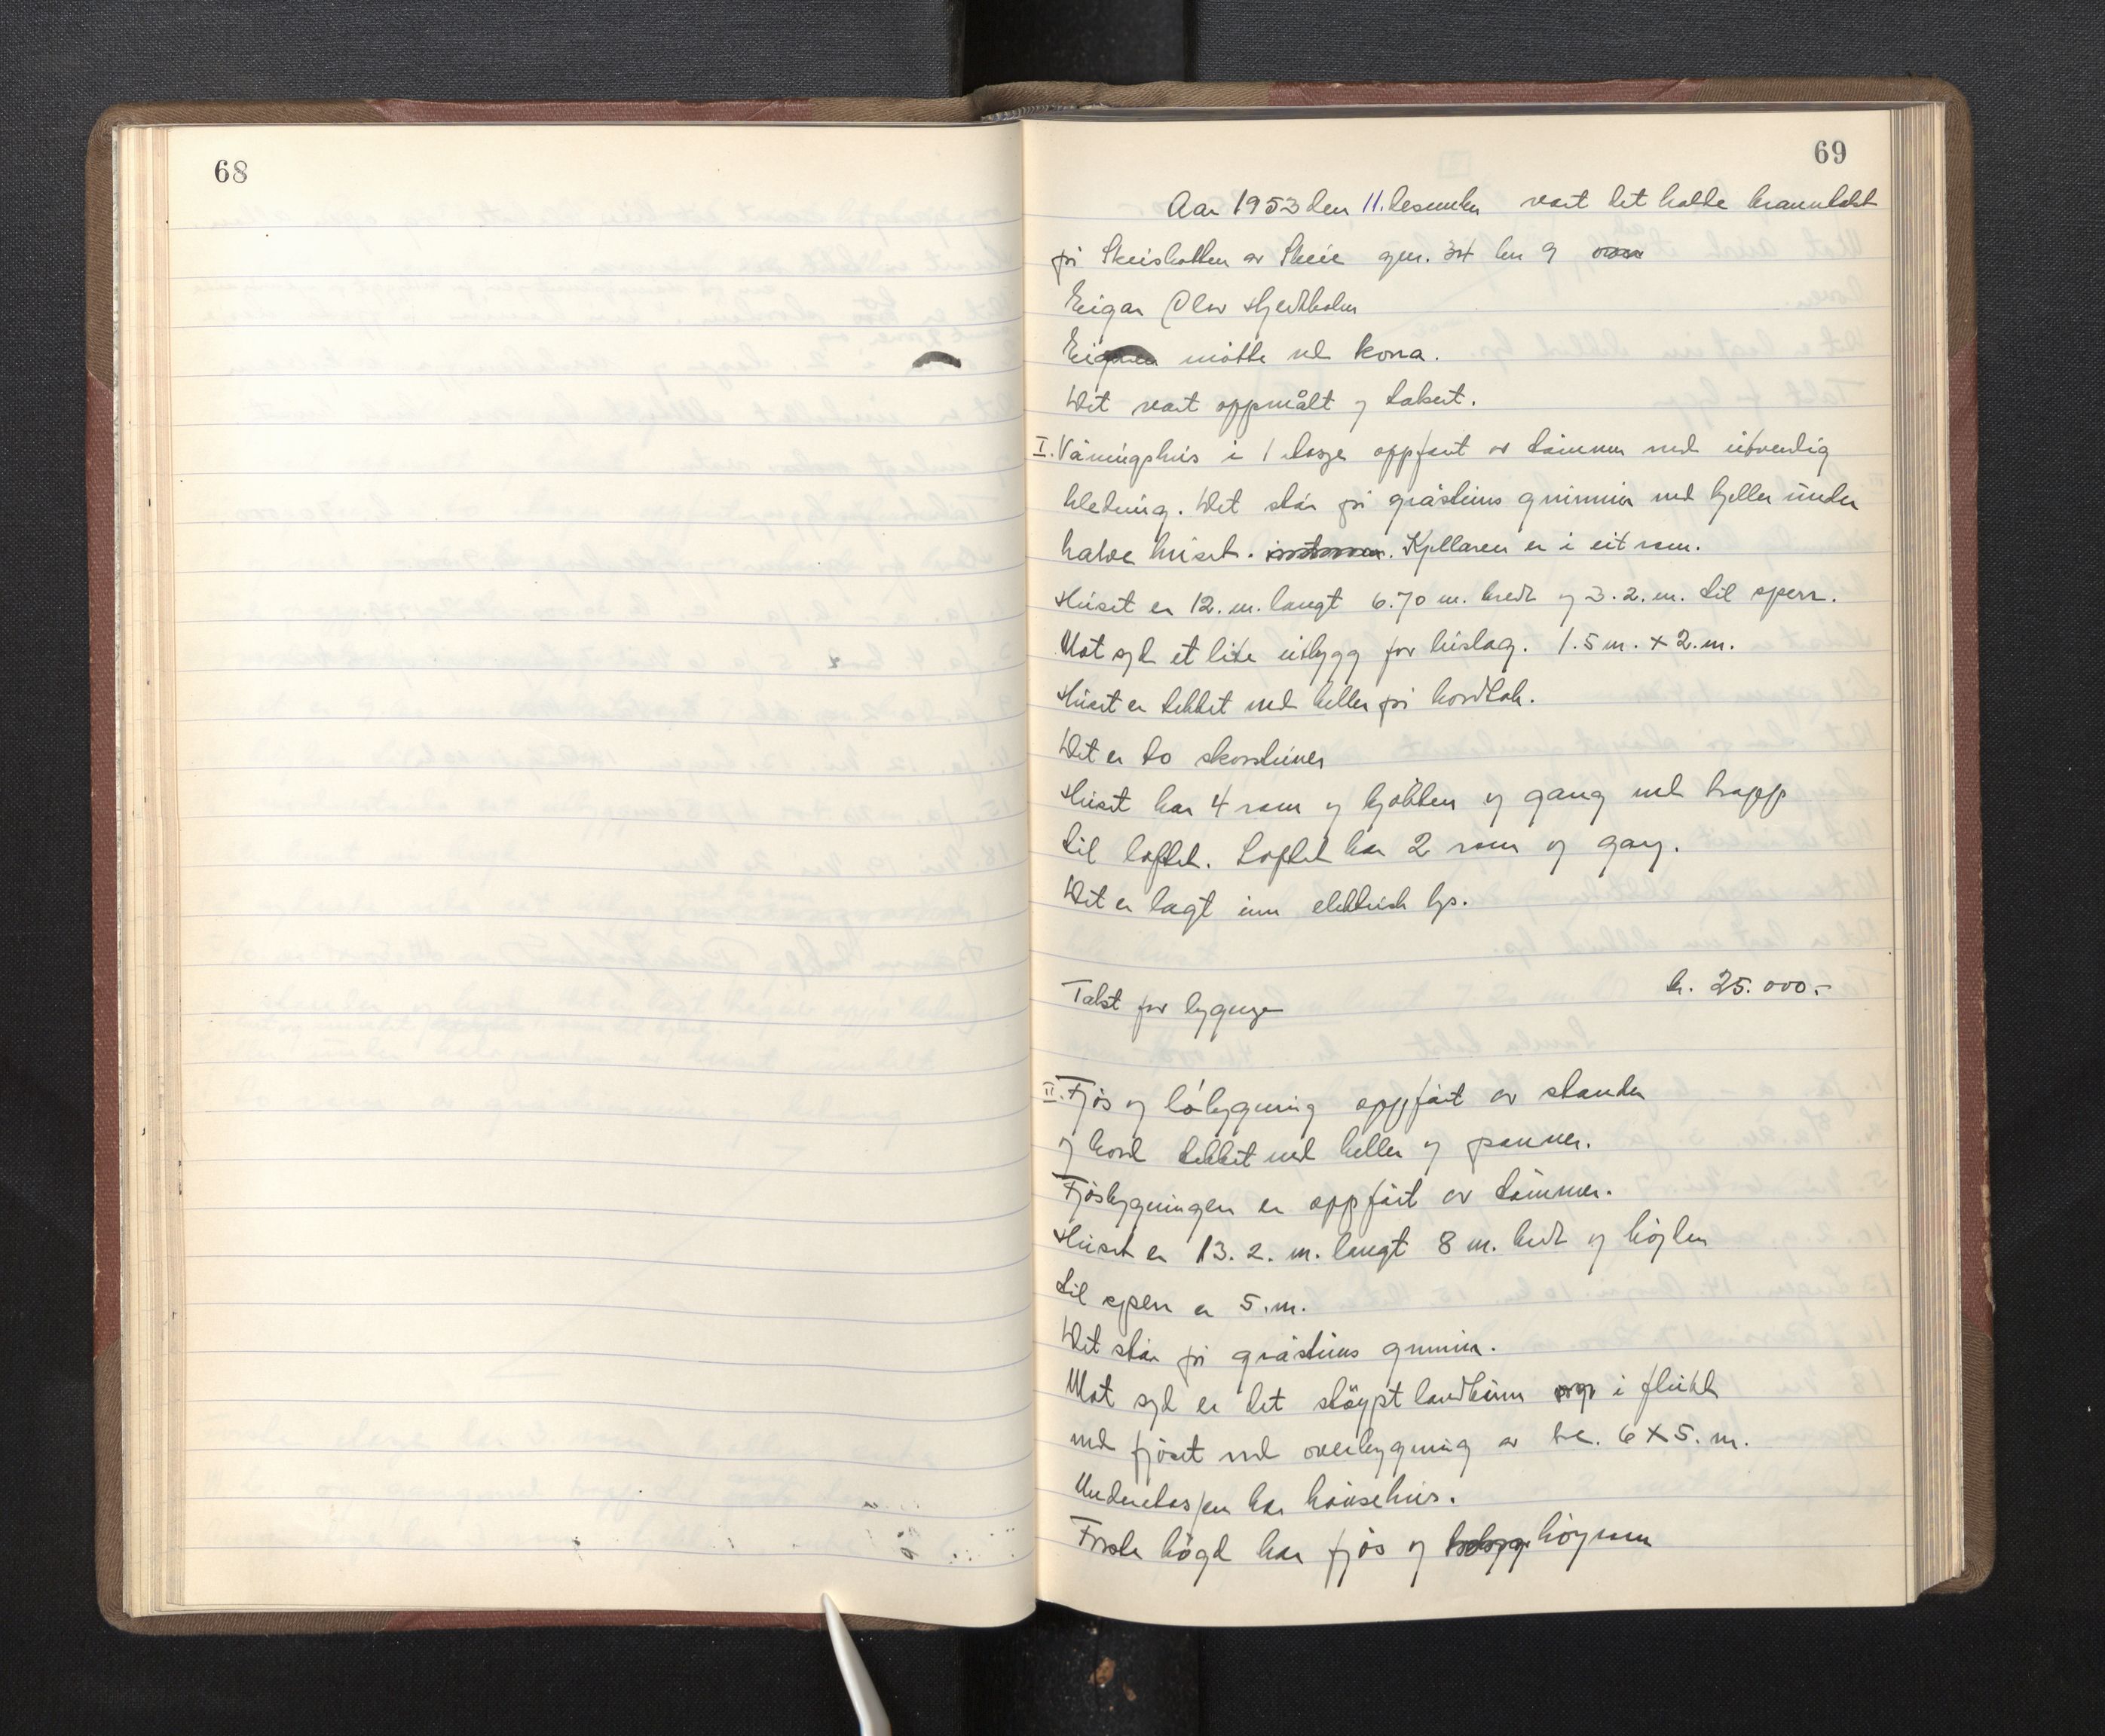 68
69
Aar 1953 den 11. desember vart det halde branntakst
på Skeishatten av Skeie gnr. 34 bnr 9
Eigar Olav Hjertholm
Eigaren møtte ved kona.
Det vart oppmålt og taksert.
I. Våningshus i 1 etasje oppført av tømmer med utvendig
kledning. Det står på gråsteins grunnmur med kjeller under
halve huset. Kjellaren er i eit rom.
Huset er 12. m. langt 6.70 m. bredt og 3.2. m. til sperr.
Mot syd et lite utbygg for bislag. 1.5 m. x 2. m.
Huset er tekket med heller på bordtak.
Det er to skorsteiner
Huset har 4 rom og kjøkken og gang med trapp
til loftet. Loftet har 2 rom og gang.
Det er lagt inn elektrisk lys.
Takst for bygningen kr. 25.000.-
II. Fjøs og løbygning oppført av stender
og bord tekket med heller og panner.
Fjøsbygningen er oppført av tømmer.
Huset er 13.2. m. langt 8 m. bredt og høyden
til sperr er 5. m.
Det står på gråsteins grunnmur.
Mot syd er det støypt landkum i flukt
med fjøset med overbygning av tre. 6 x 5. m.
Underetasjen har hønsehus.
Første høgd har fjøs og høyrom